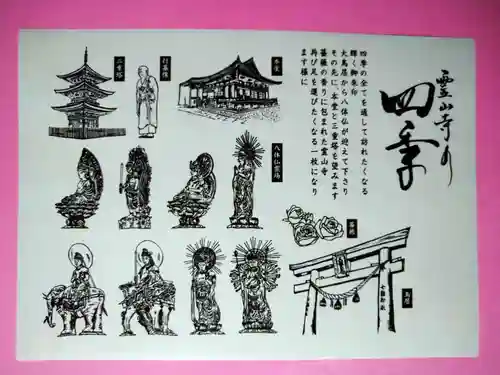 霊山寺の
四季
四季の全てを通して訪れたくなる
輝く御朱印
大鳥居から八体仏が迎えて下さり
その先に本堂と三重塔を望みます
薔薇の香りに包まれた霊山寺
再び足を運びたくなる一枚になり
ます様に
本堂
行基像
三重塔
八体仏霊場
薔薇
鳥居